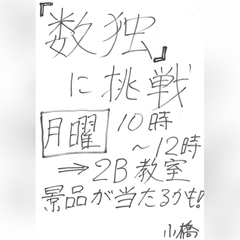 『数独』
に挑戦
月曜 10時
~12時
⇒2B教室
景品が当たるかも!
小橋